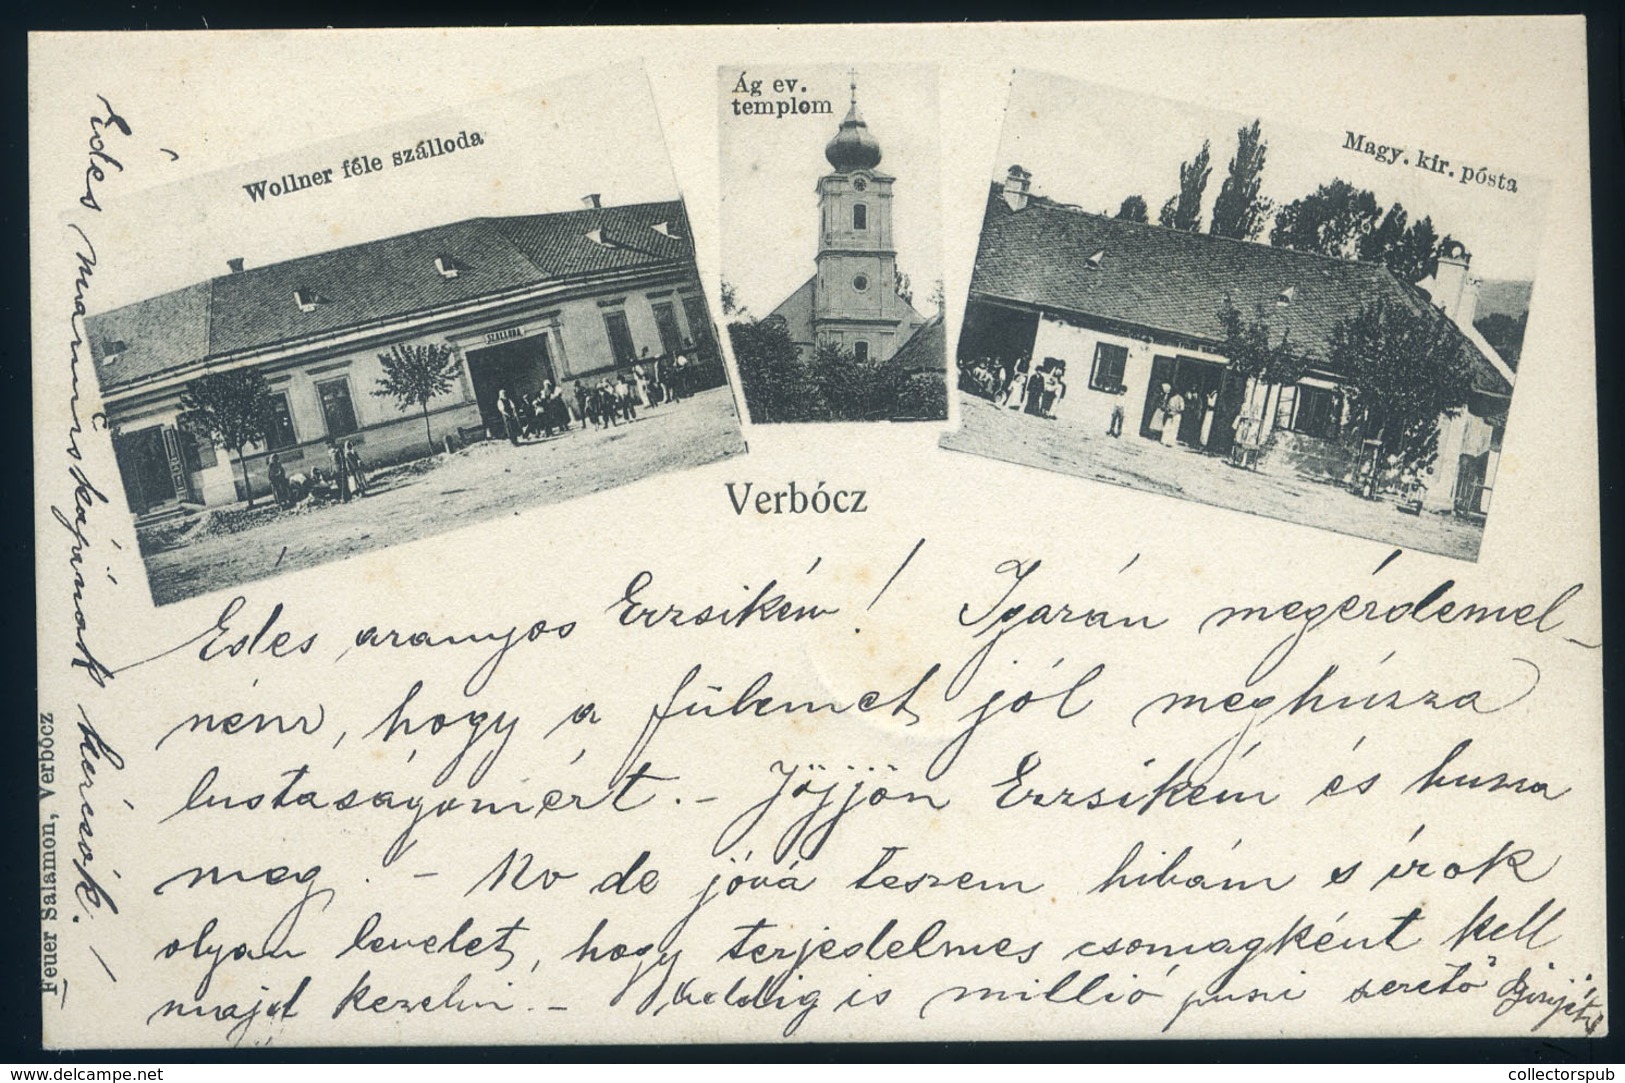 Wollner féle szálloda
Ág ev.
templom
Magy. kir. pósta
SZÁLLODA
Verbócz
Edes aranyos Erzsikém! Igazán megérdemel-
ném, hogy a fülemet jól meghúzza
lustaságomért. - Jöjjön Erzsikém és huzza
meg. - No de jóvá teszem hibám s írok
olyan levelet, hogy terjedelmes csomagként kell
majd kezelni. - Addig is millió puszi szerető
Édes mamuskájának kezicsók! -
Feuer Salamon, Verbócz
www.delcampe.net
collectorspub